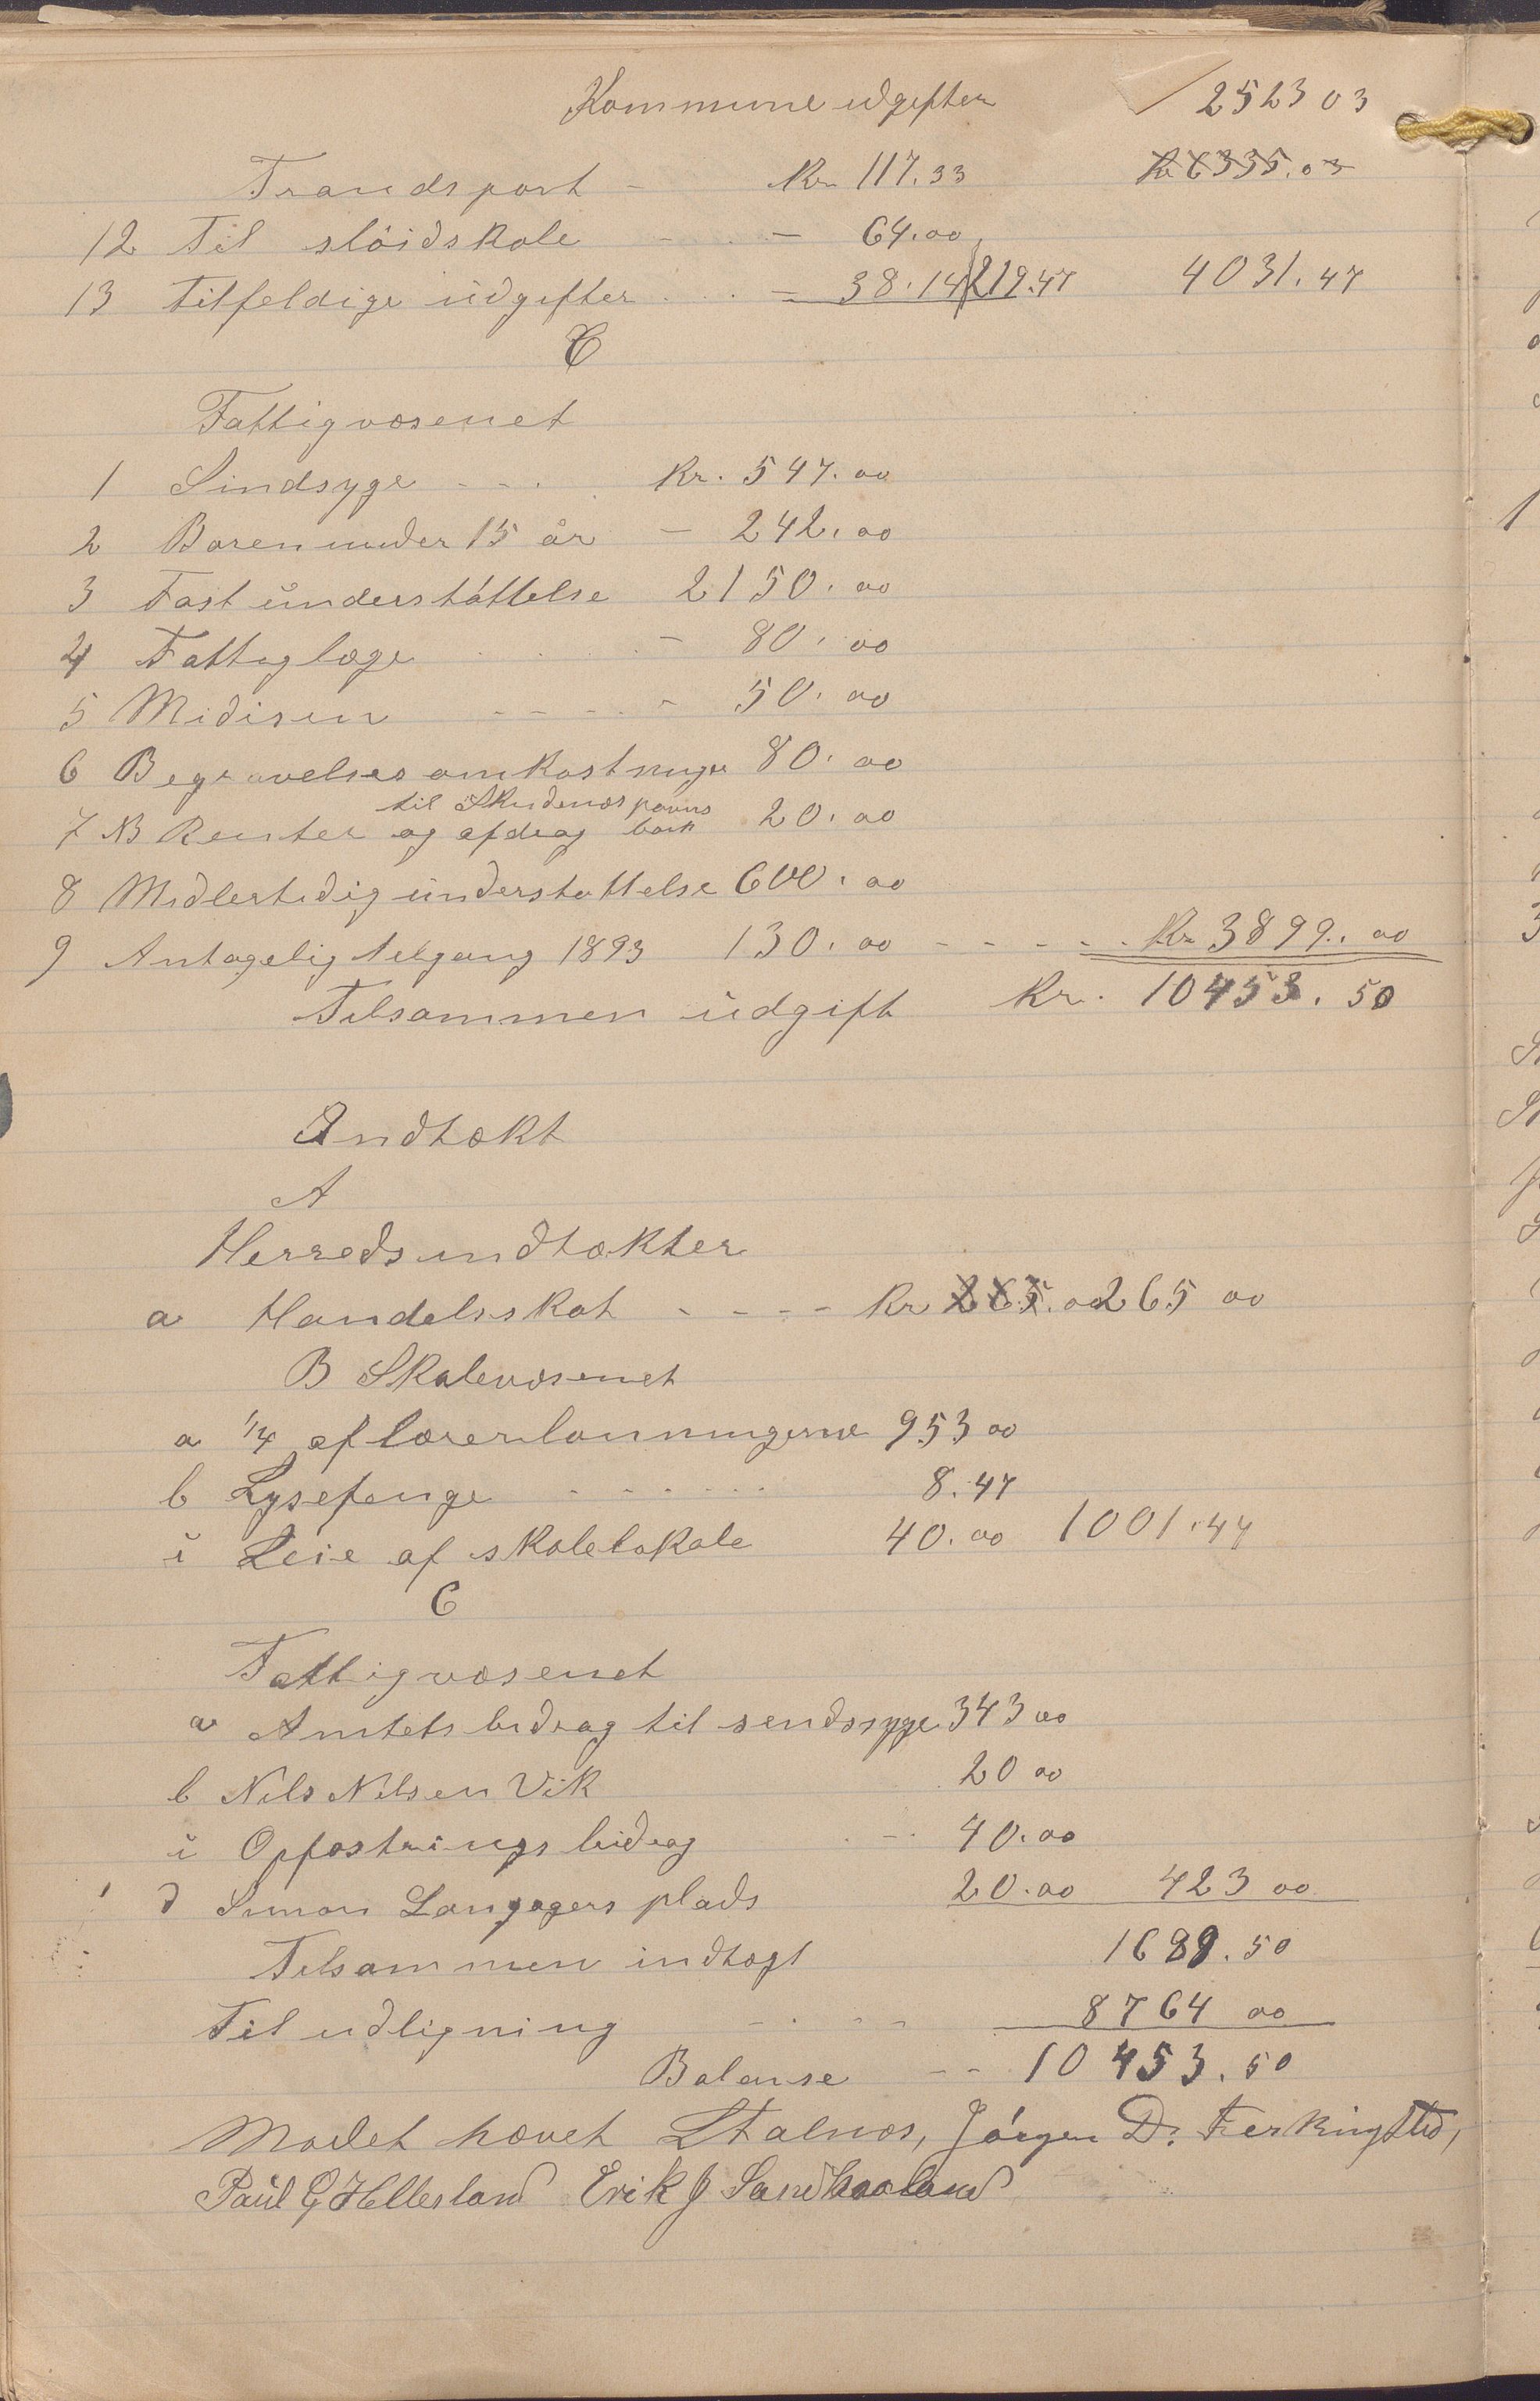 Kommune udgifter 2523 03
Trandsport - Kr 117.33 Kr 6335.03
12 Til slöidskole - - 64.00
13 Tilfeldige udgifter . . - 38.14 219.47 4031.47
C
Fattigvæsenet
1 Sindsyge - - . Kr. 547.00
2 Baren under 15 år - 242.00
3 Fast understøttelse 2150.00
4 Fattiglæge . . . - 80.00
5 Midisin - - - . - 50.00
6 Begravelses omkostninger 80.00
til Skudenæs spare
7 NB Renter og afdrag bank 20.00
8 Midlertidig understøttelse 600.00
9 Antagelig tilgang 1893 130.00 - - - - . Kr 3899.00
Tilsammen udgift Kr. 10453.50
Indtækt
A
Herredsindtækter
a Handelsskat - - - - Kr 265.00 265 00
B Skolevæsenet
a 1/4 af lærerlønningerne 953 00
b Lysepenge - - - - - . . 8.47
c Leie af skolelokale 40.00 1001.47
C
Fattigvæsenet
a Amtets bidrag til sendssyge 343 00
b Nils Nilsen Vik 20 00
c Opfostrings bidrag . - . 40.00
d Simon Langagers plads 20.00 423 00
Tilsammen indtægt 1689.50
Til udligning - . - - 8764 00
Balanse - - 10453.50
Mødet hævet L Stalnæs, Jørgen D. Ferkingsted,
Paul G Hellesland Erik J. Sandhaaland